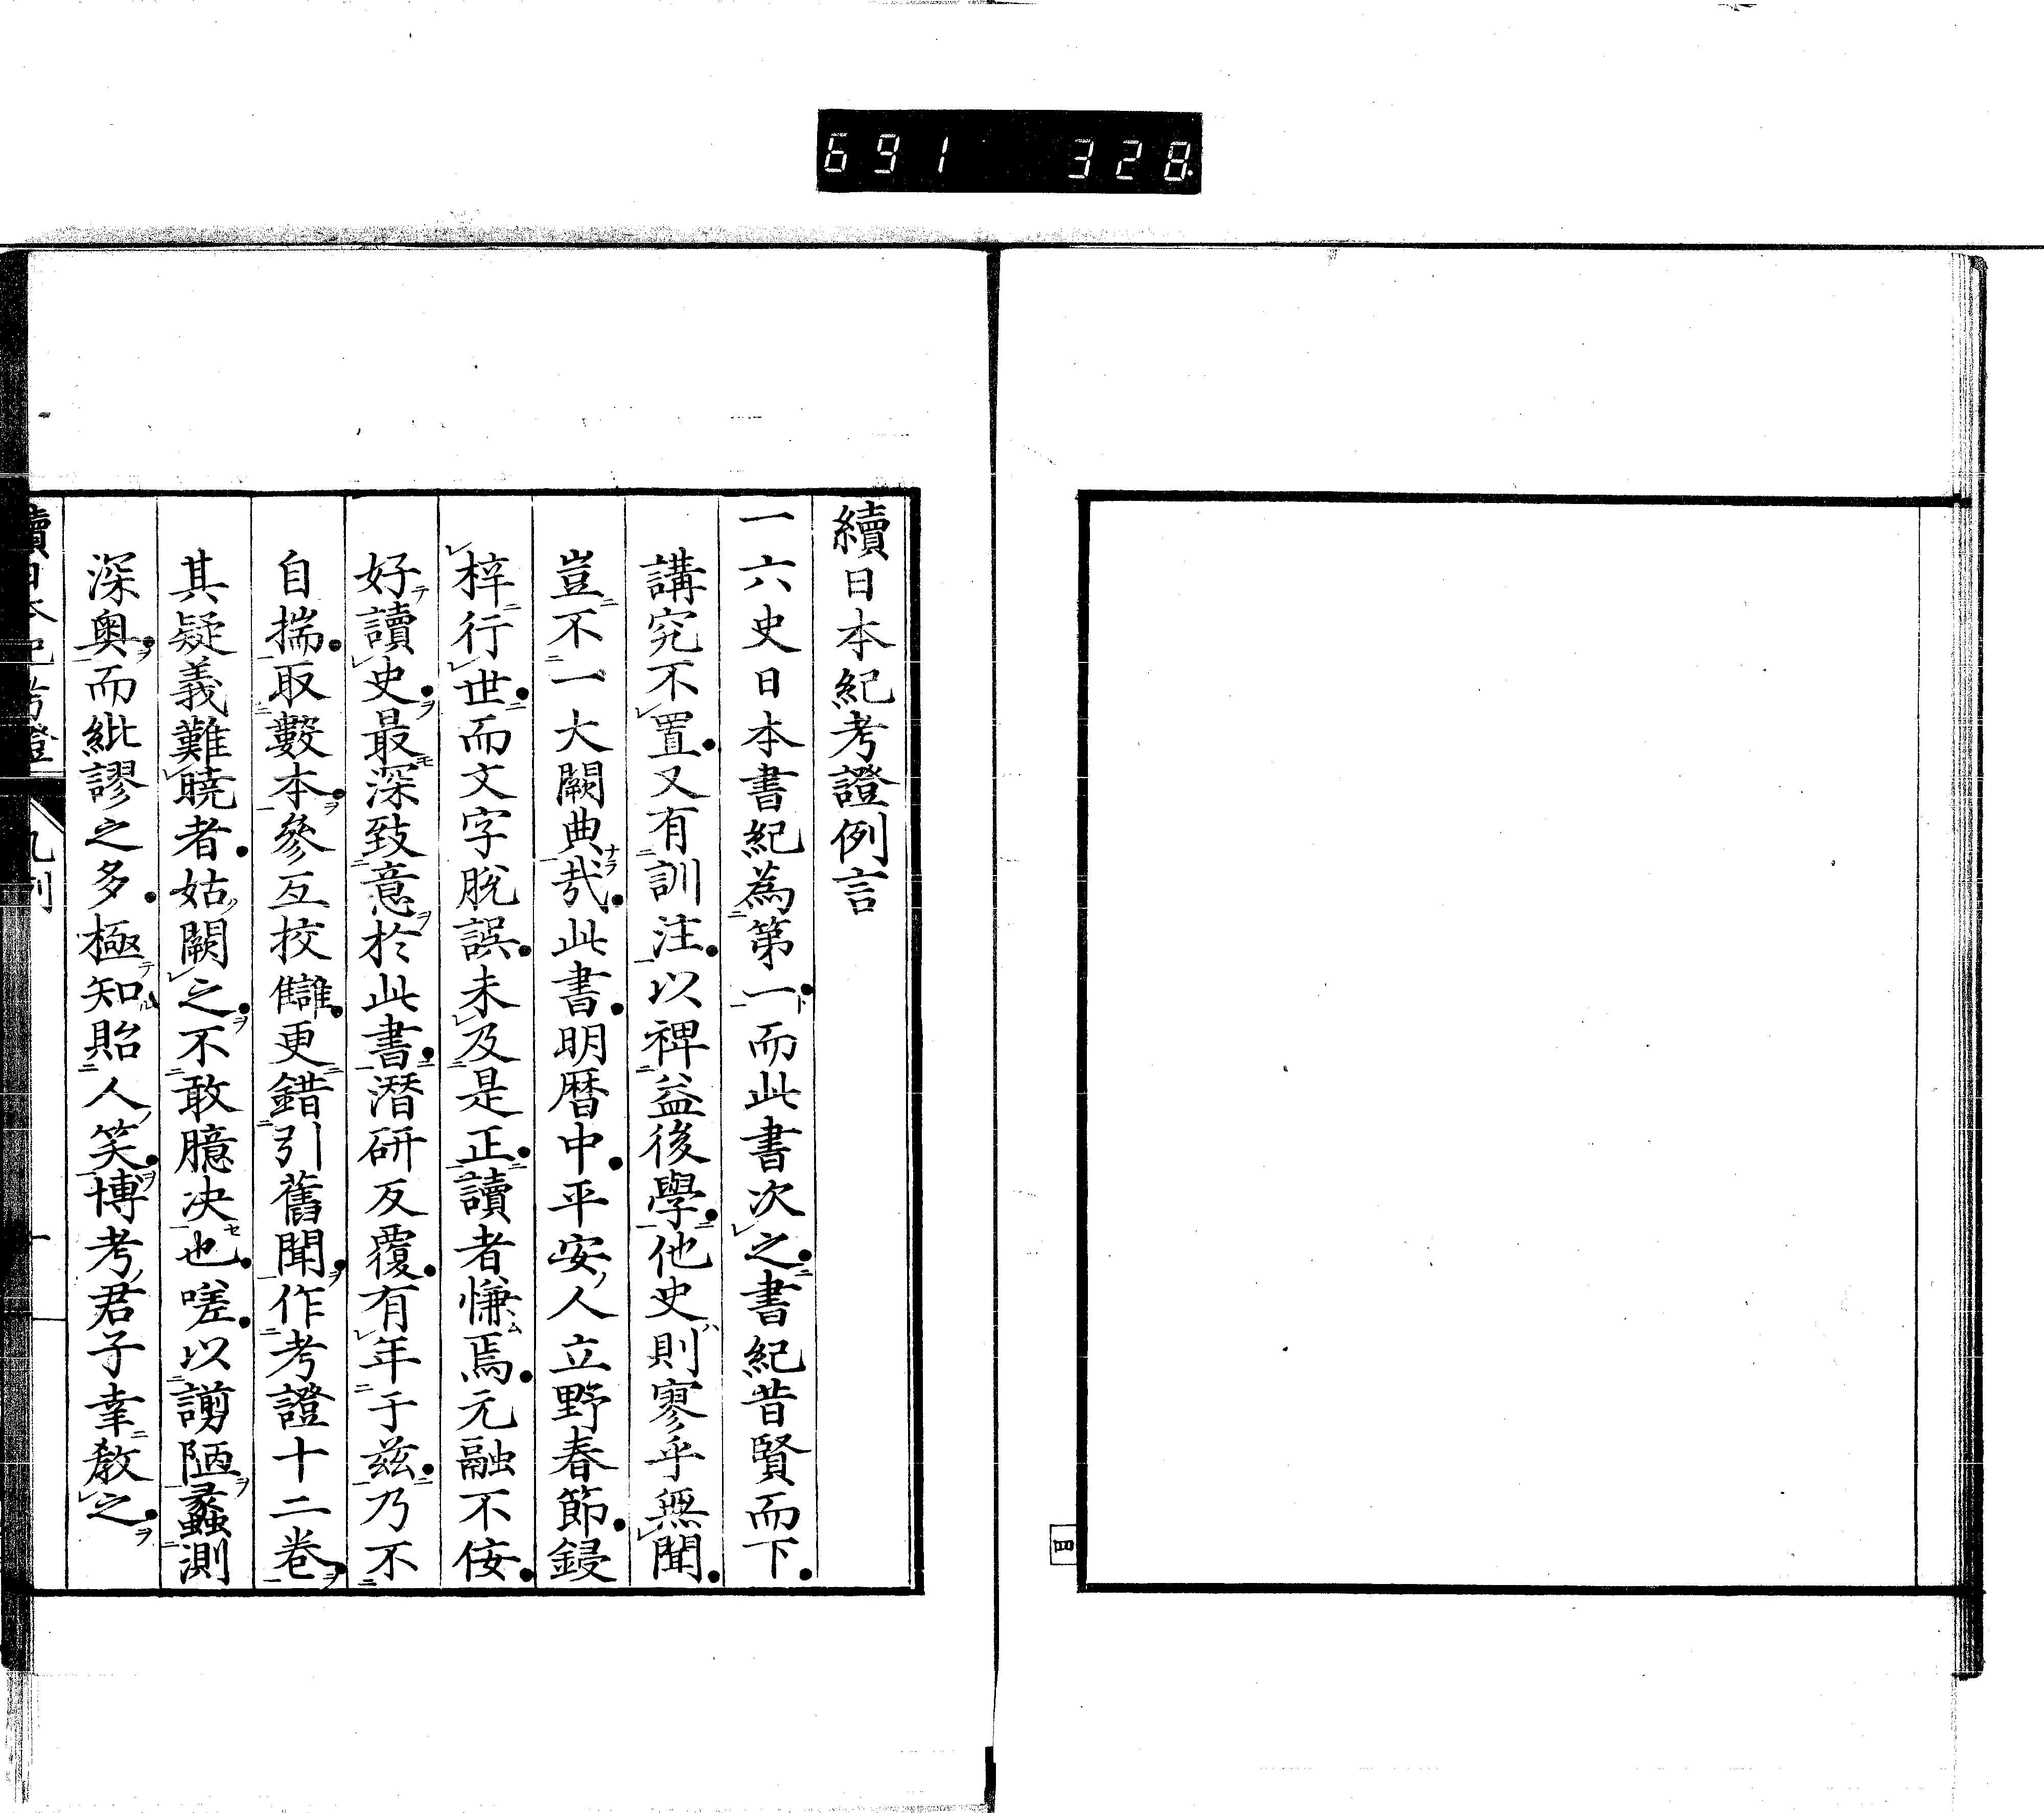 691 328
四
續日本紀考證例言
一六史日本書紀為第一而此書次之書紀昔賢而下
講究不置又有訓注以裨益後學他史則寥乎無聞
豈不一大闕典哉此書明曆中平安人立野春節鋟
梓行世而文字脫誤未及是正讀者慊焉元融不佞
好讀史最深致意於此書潛研反覆有年于茲乃不
自揣取數本參互挍讎更錯引舊聞作考證十二卷
其疑義難曉者姑闕之不敢臆决也嗟以謭陋蠡測
深奧而紕謬之多極知貽人笑博考君子幸敎之
續日本紀考證 凡例 一